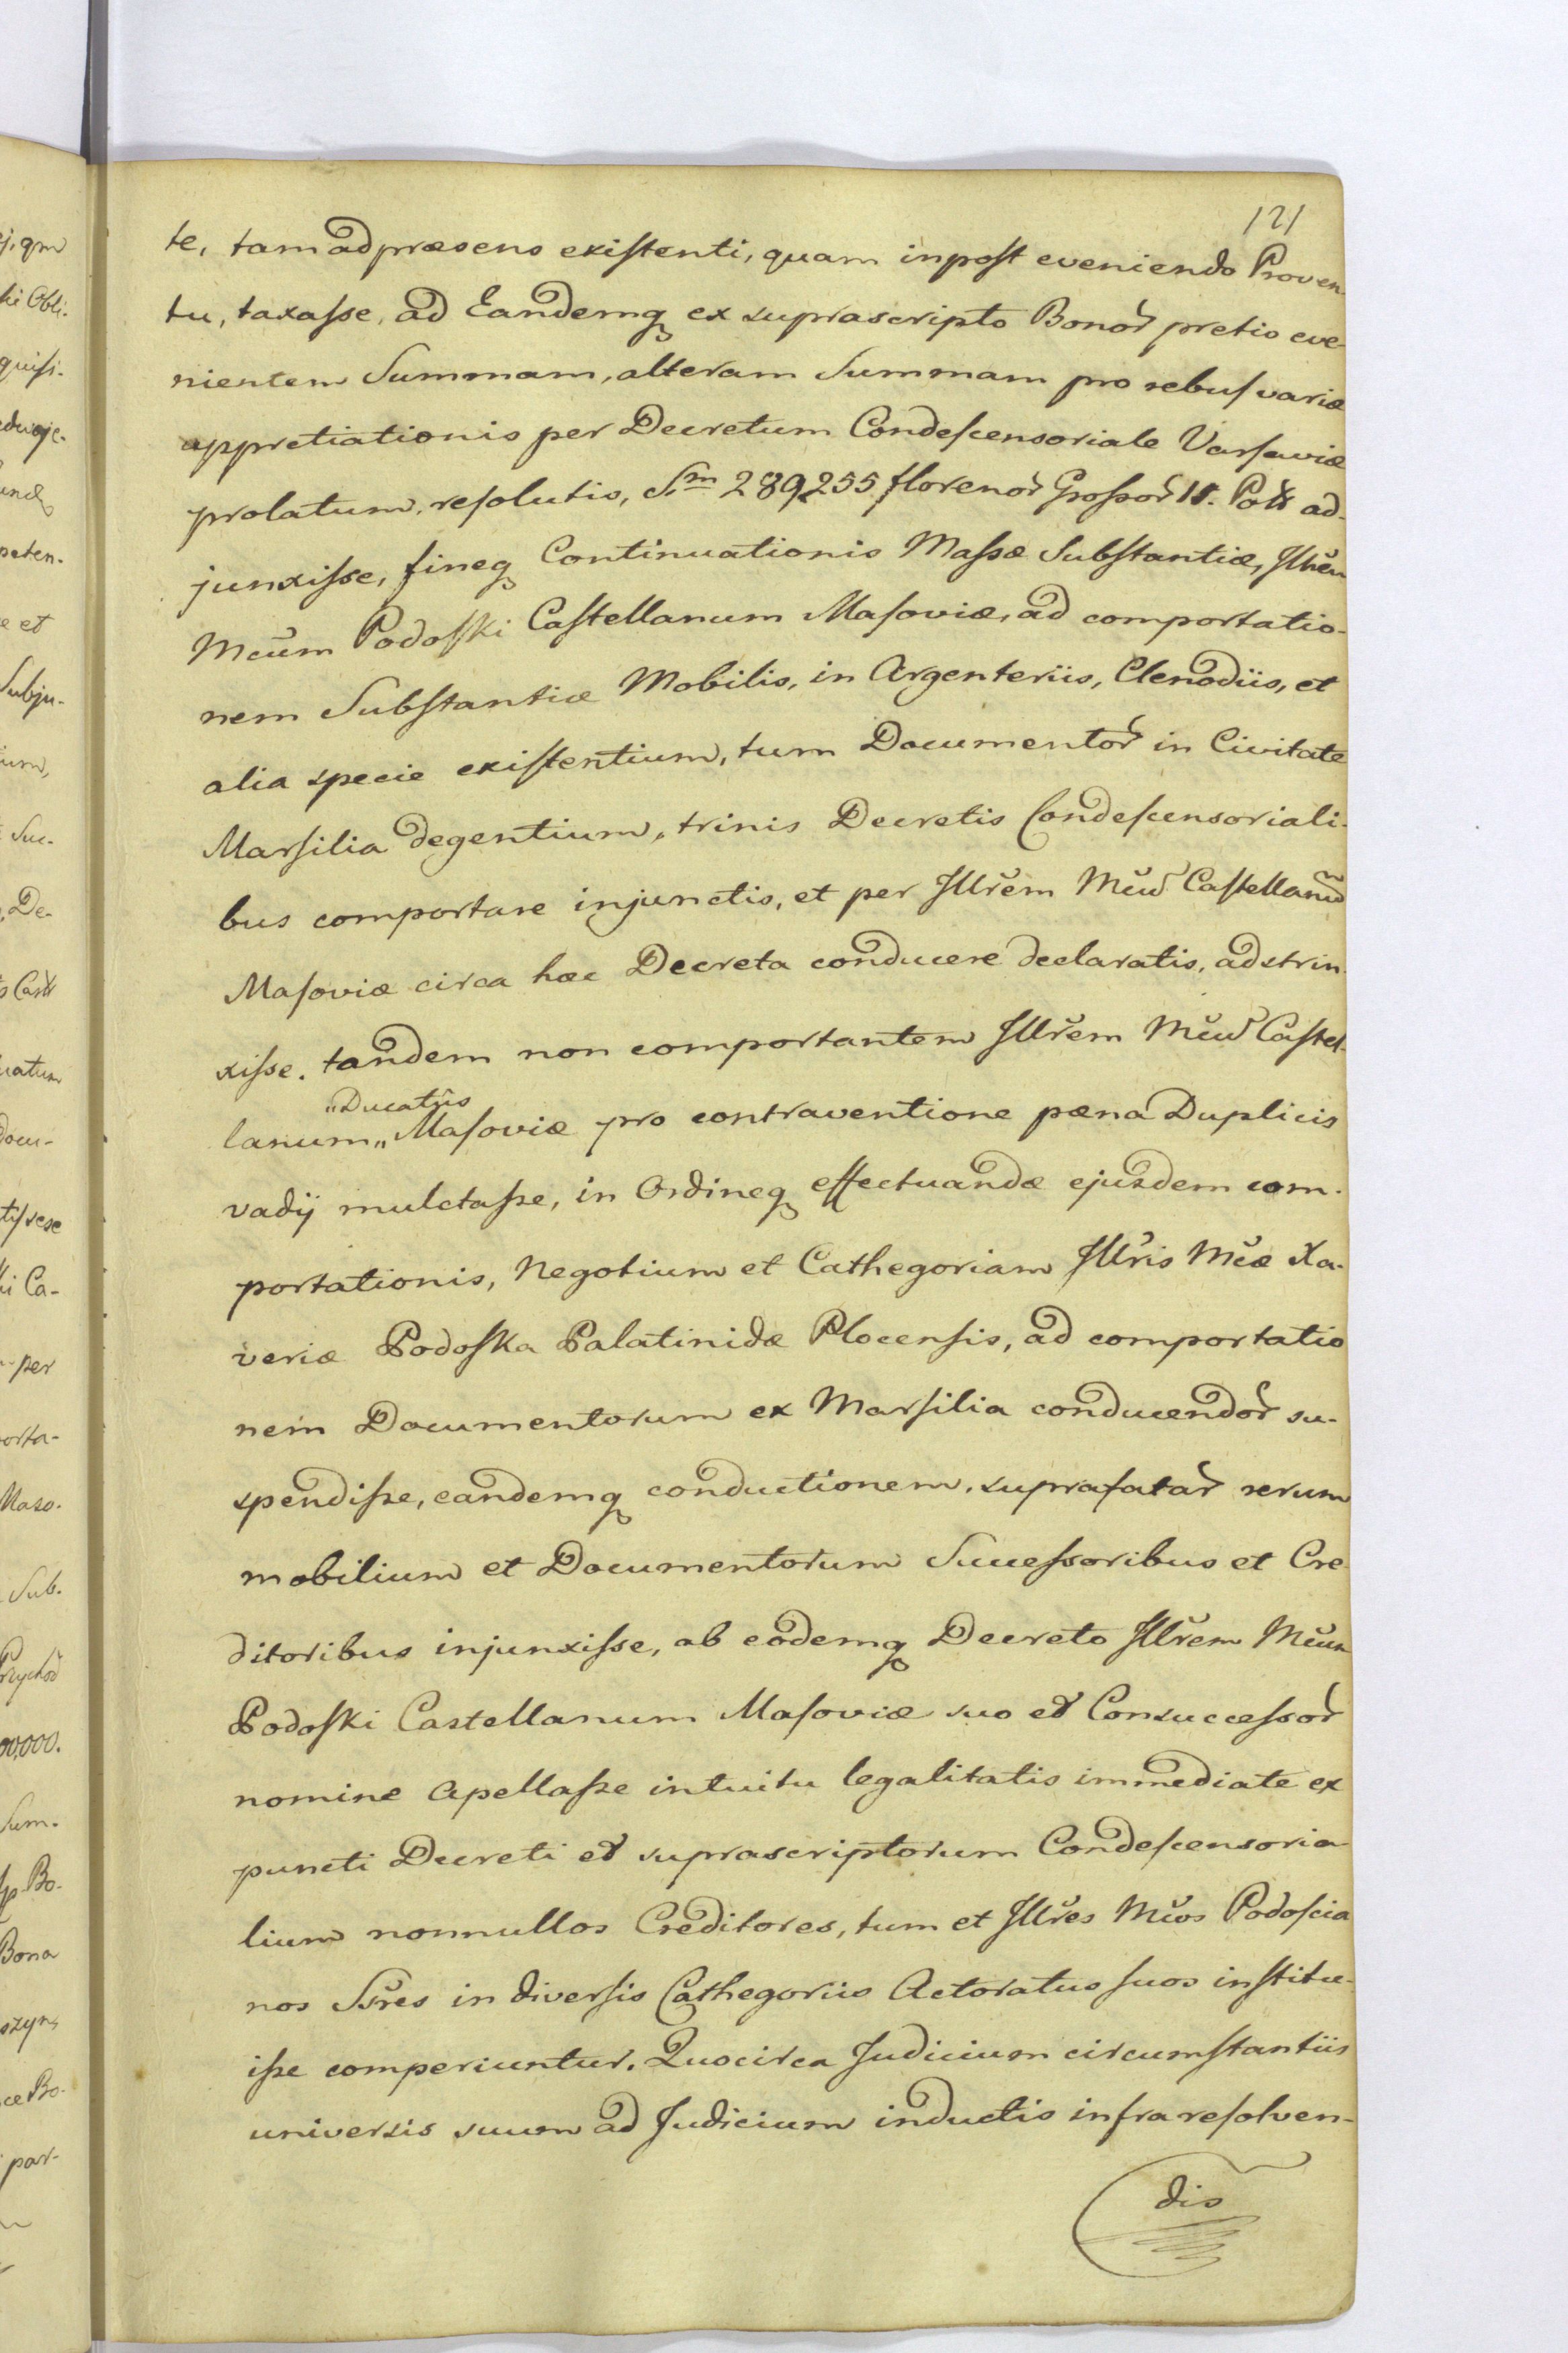 121
te, tam ad præsens existenti, quam inpost eveniendo Proven-
tu, taxasse, ad Eandemq ex suprascripto Bonor̃ pretio eve-
nientem Summam, alteram Summam pro rebus variæ
appretiationis per Decretum Condescensoriale Varsaviæ
prolatum, resolutis, Sm̅ 289,255 florenor̃ Grossor̃ Poll ad-
junxisse, fineq Continuationis Massæ Substantiæ, Illr̃em
Mcũm Podoski Castellanum Masoviæ, ad comportatio-
nem Substantiæ Mobilis, in Argenteriis, Clenodiis, et
alia specie existentium, tum Documentor̃ in Civitate
Marsilia degentium, trinis Decretis Condescensoriali-
bus comportare injunctis, et per Illr̃em Mcũm Castellanũ
Masoviæ circa hæc Decreta conducere declaratis, adstrin-
xisse. tandem non comportantem Illr̃em Mcũm Castel-
„Ducatus
lanum„ Masoviæ pro contraventione pæna Duplicis
vadij mulctasse, in Ordineq effectuandæ ejusdem com-
portationis, Negotium et Cathegoriam Illr̃is Mcæ Xa-
veriæ Podoska Palatinidæ Plocensis, ad comportatio
nem Documentorum ex Marsilia conducendor̃ su-
spendisse, eandemq conductionem, suprafatar̃ rerum
mobilium et Documentorum Successoribus et Cre-
ditoribus injunxisse, ab eodemq Decreto Illr̃em Mcũm
Podoski Castellanum Masoviæ suo et Consuccessor̃
nomine Apellasse intuitu legalitatis immediate ex
puncti Decreti et suprascriptorum Condescensoria-
lium nonnullos Creditores, tum et Illr̃es Mc̃os Podoscia
nos Ss̃res in diversis Cathegoriis Actoratus suos institu-
isse comperiuntur. Quocirca Judicium circumstantiis
universis suum ad Judicium inductis infra resolven-
dis